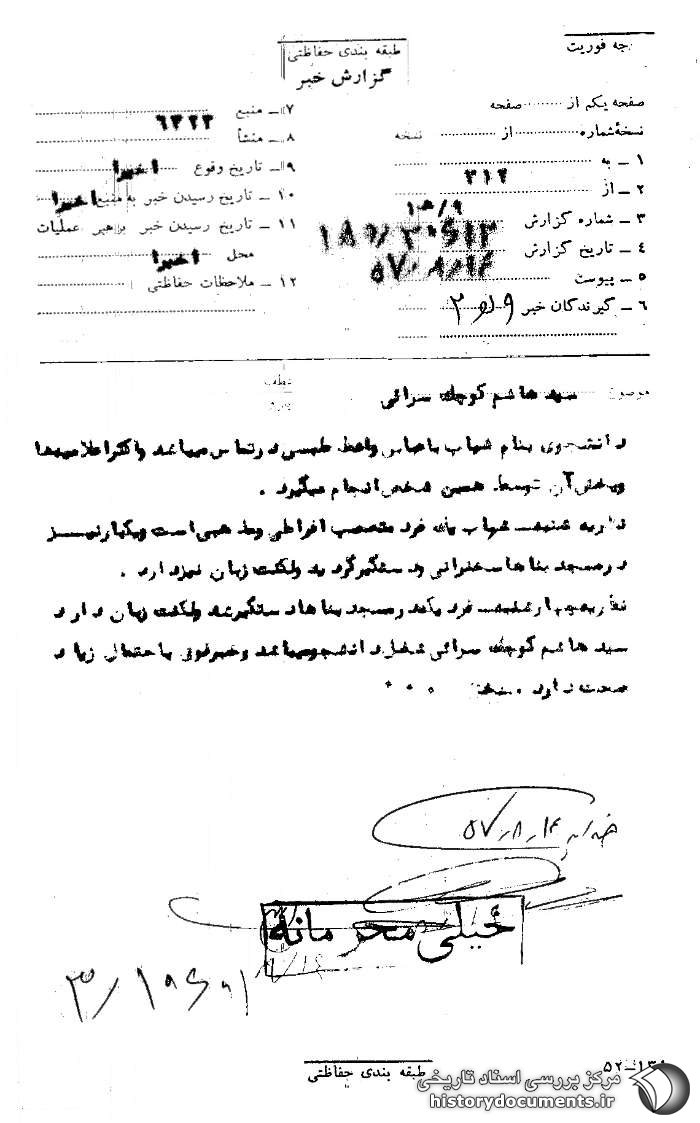 درجه فوریت
طبقه بندی حفاظتی
گزارش خبر
صفحه یکم از صفحه
نسخهٔ شماره از نسخه
۱ ــ به
۲ ــ از ۳۱۲
۳ ــ شماره گزارش
۴ ــ تاریخ گزارش ۵۷/۸/۱۴
۵ ــ پیوست
۶ ــ گیرندگان خبر
۷ ــ منبع
۸ ــ منشأ
۹ ــ تاریخ وقوع اخیرا
۱۰ ــ تاریخ رسیدن خبر به منبع اخیرا
۱۱ ــ تاریخ رسیدن خبر به رهبر عملیات
محل اخیرا
۱۲ ــ ملاحظات حفاظتی
موضوع سید هاشم کوچک سرائی
دانشجوی بنام شهاب باعباس واعظ طبسی در تماس میباشد واکثر اعلامیه‌ها
وپخش آن توسط همین شخص انجام میگیرد .
نظریه شنبه شهاب یک فرد متعصب افراطی ومذهبی است ویکبار نیز
درمسجد بناها سخنرانی ودستگیر گردید ولکنت زبان نیز دارد .
نظریه چهارشنبه فرد یکه درمسجد بناها دستگیر شد ولکنت زبان دارد
سید هاشم کوچک سرائی شغل دانشجو میباشد وخبر فوق باحتمال زیاد
صحت دارد .
۵۷/۸/۱۴
خیلی محرمانه
طبقه بندی حفاظتی
مرکز بررسی اسناد تاریخی
historydocuments.ir